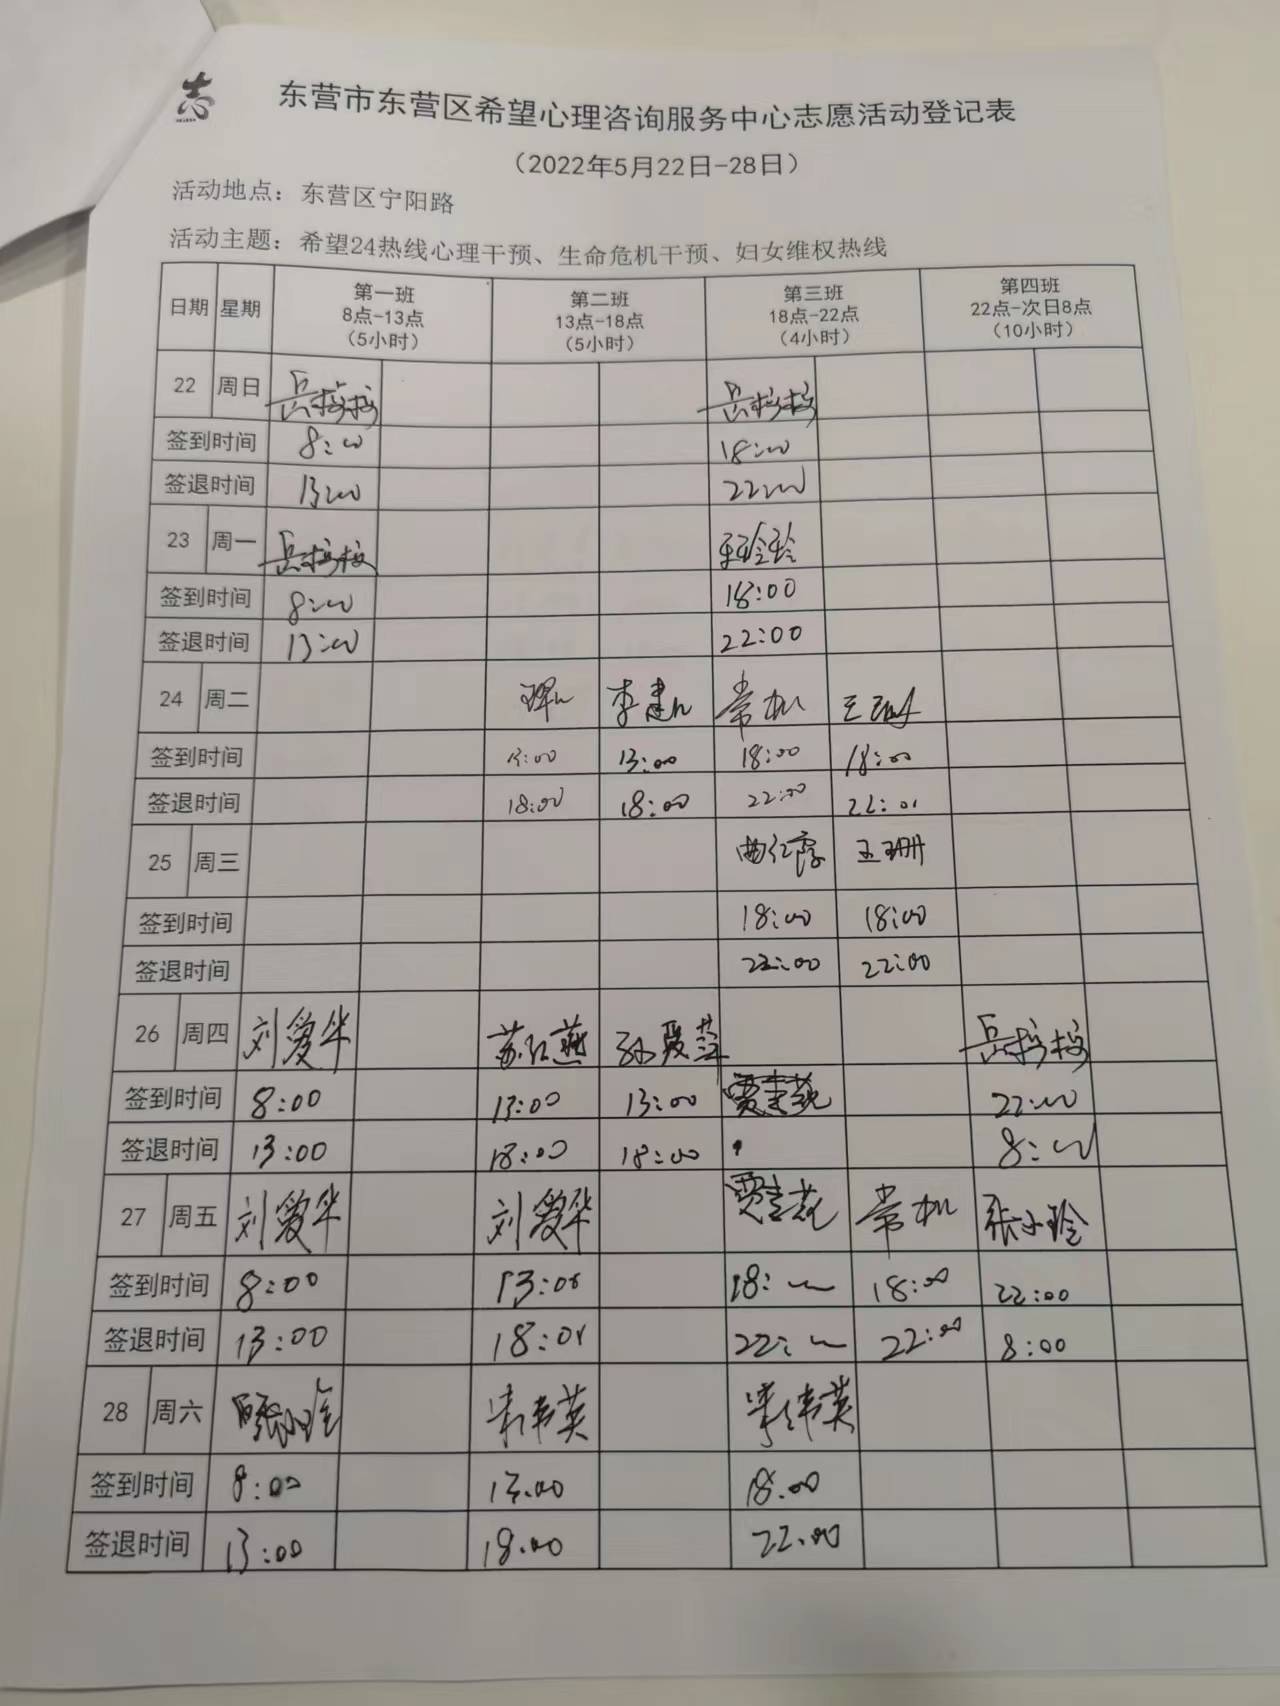 志
东营市东营区希望心理咨询服务中心志愿活动登记表
（2022年5月22日-28日）
活动地点：东营区宁阳路
活动主题：希望24热线心理干预、生命危机干预、妇女维权热线
日期 星期 第一班 8点-13点 （5小时） 第二班 13点-18点 （5小时） 第三班 18点-22点 （4小时） 第四班 22点-次日8点 （10小时）
22 周日
签到时间 8:00 18:00
签退时间 13:00 22:00
23 周一
签到时间 8:00 18:00
签退时间 13:00 22:00
24 周二 常机
签到时间 13:00 13:00 18:00 18:00
签退时间 18:00 18:00 22:00 22:00
25 周三 曲红霞 王珊
签到时间 18:00 18:00
签退时间 22:00 22:00
26 周四 刘爱华 苏红燕
签到时间 8:00 13:00 13:00 22:00
签退时间 13:00 18:00 18:00 8:00
27 周五 刘爱华 刘爱华 常机 张小玲
签到时间 8:00 13:00 18: 18:00 22:00
签退时间 13:00 18:00 22: 22:00 8:00
28 周六
签到时间 8:00 13:00 18:00
签退时间 13:00 18:00 22:00